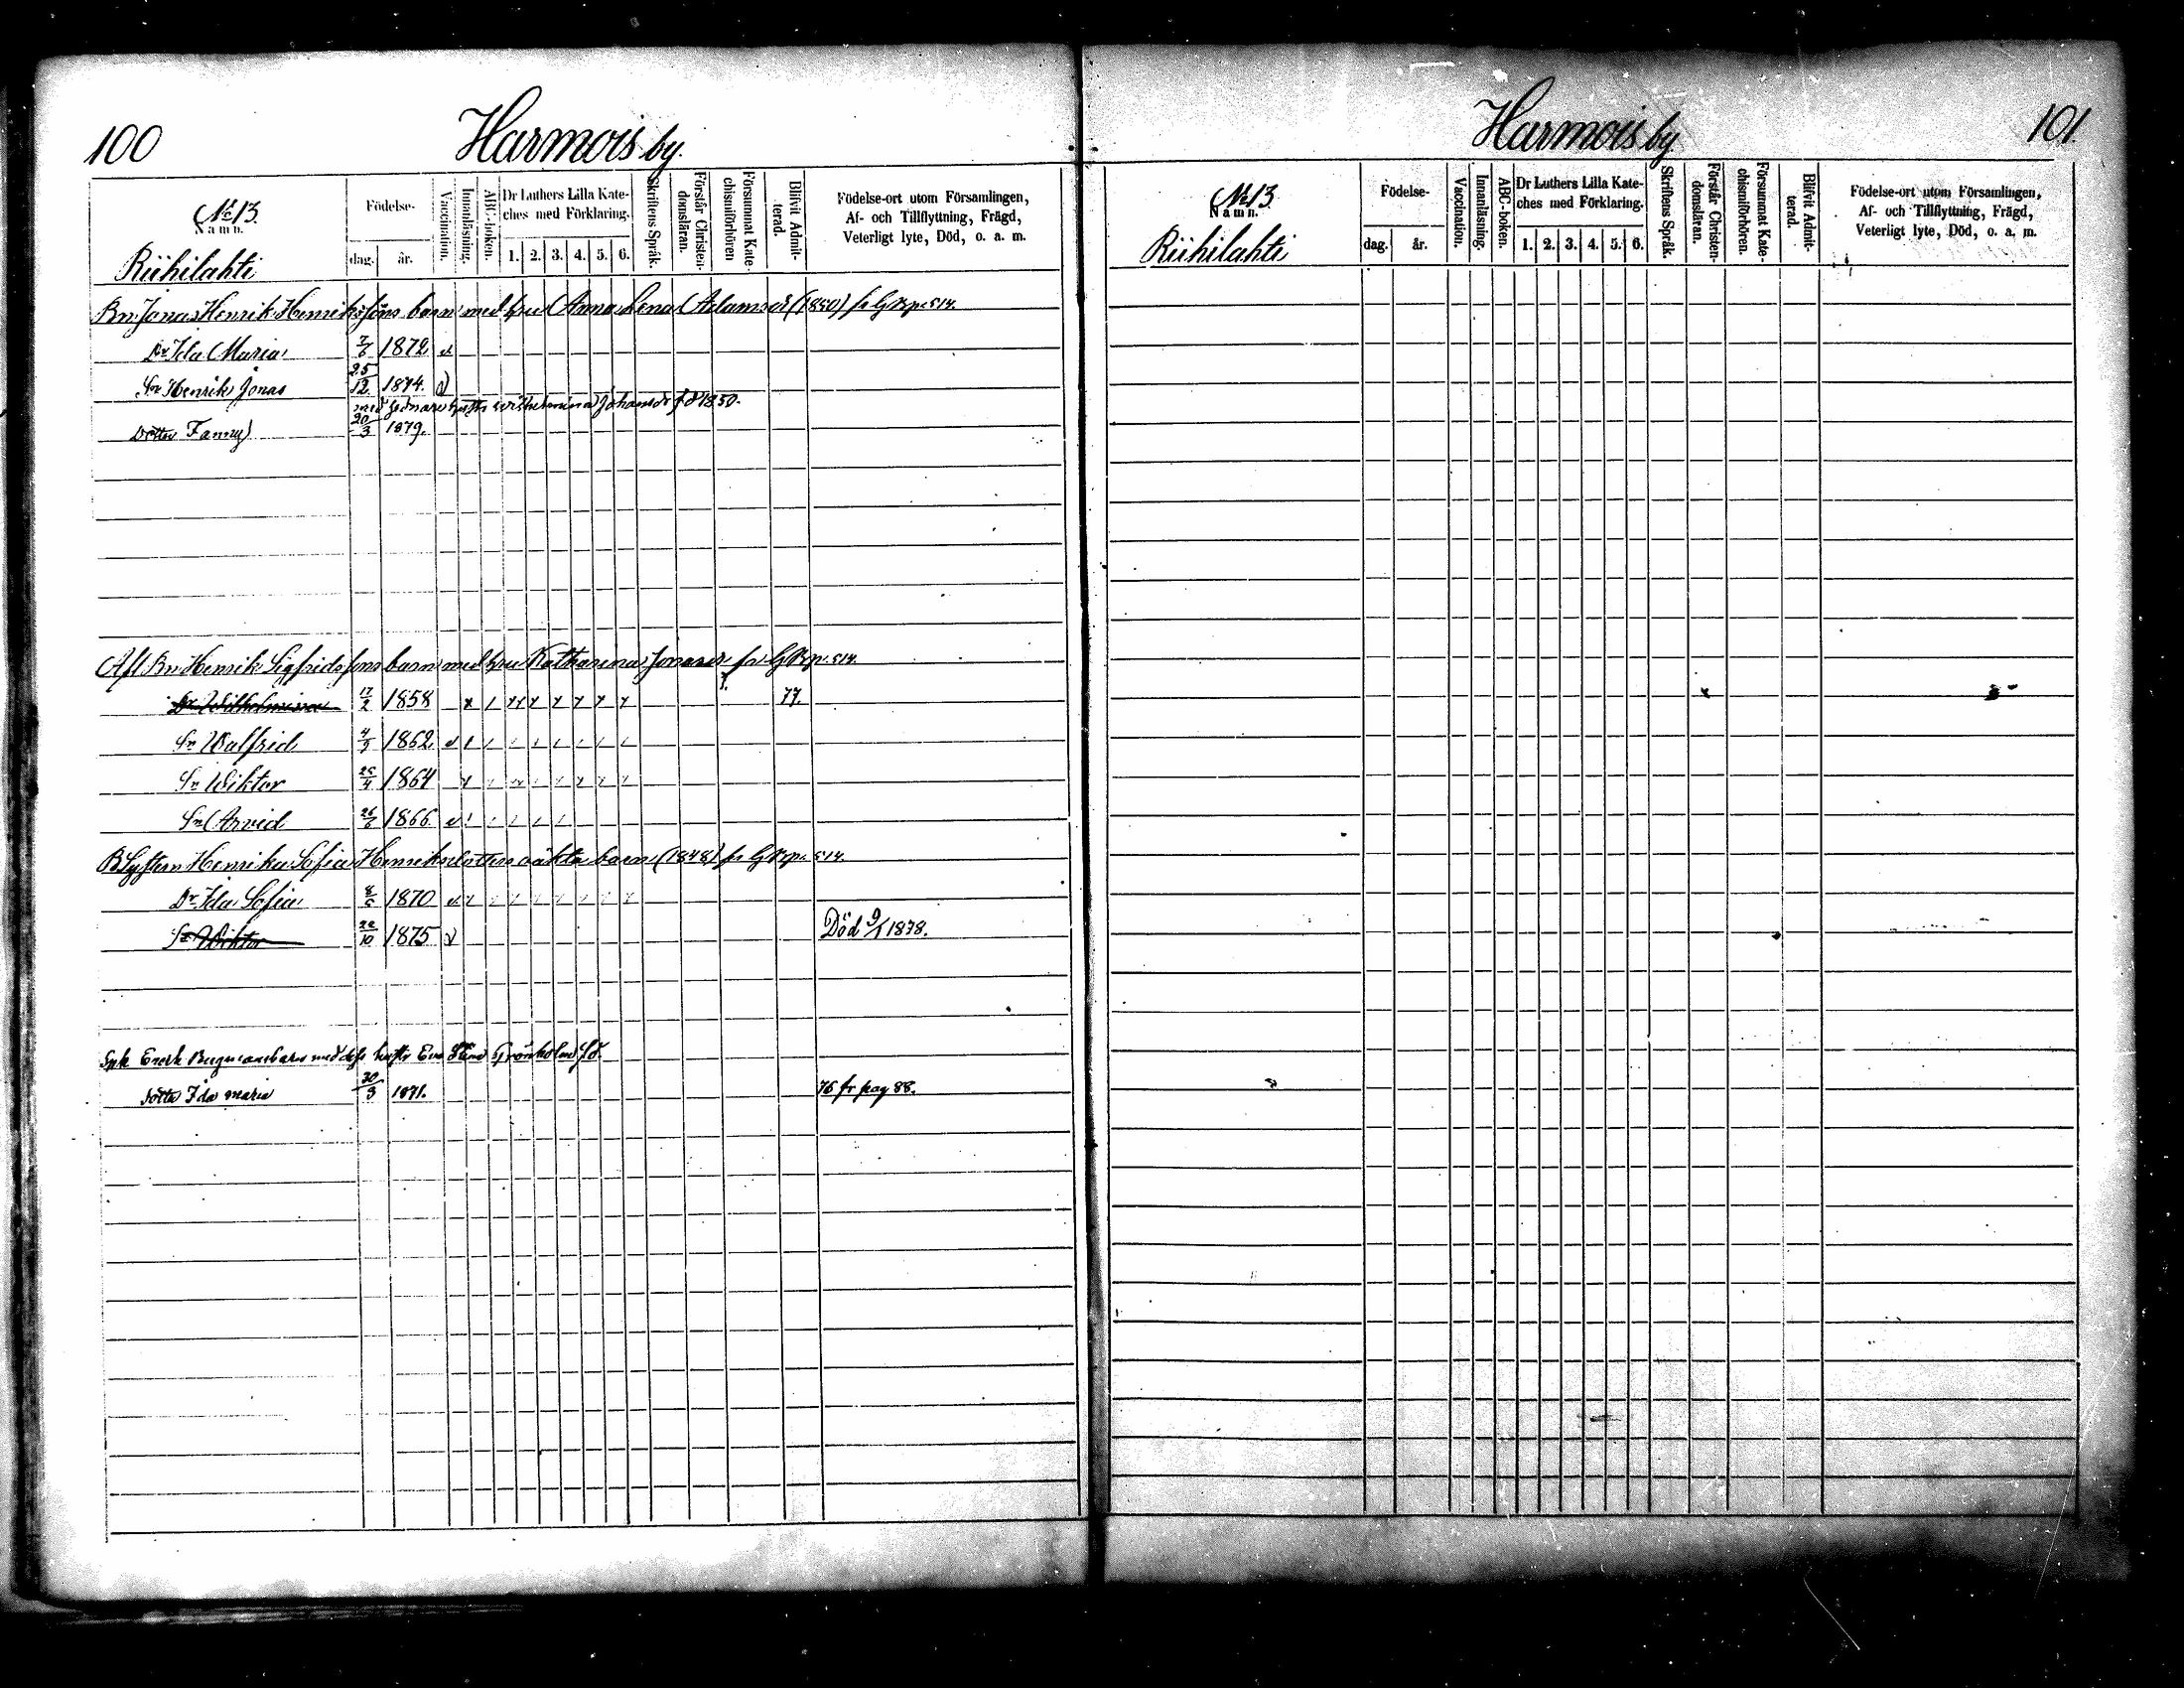 100
Harmois by.
№ 13.
Namn.
Riihilahti
Födelse-
dag.
år.
Vaccination.
Innanläsning.
ABC-boken.
Dr Luthers Lilla Kate-
ches med Förklaring.
1. 2. 3. 4. 5. 6.
Skriftens Språk.
Förstår Christen-
domsläran.
Försummat Kate-
chismiförhören
Blifvit Admit-
terad.
Födelse-ort utom Församlingen,
Af- och Tillflyttning, Frägd,
Veterligt lyte, Död, o. a. m.
Bn. Jonas Henrik Henrikssons barn med hru Anna Lena Adamsdr (1850) fr p. 514.
Dr Ida Maria 7/6 1872 v
Sn Henrik Jonas 25/12 1874. v
med sednare hustr Wilhelmina Johansdr f. 1850.
Dotter Fanny 20/3 1879.
Afl Bn Henrik Sigfridssons barn med hru Katharina Jonasdr fr p. 514.
Dr Wilhelmina 17/2 1858 77.
Sn Walfrid 4/3 1862 v
Sn Wiktor 25/4 1864
Sn Arvid 26/6 1866 v
B. Systern Henrika Sofia Henriksdotters oäkta barn (1848) fr p. 514.
Dr Ida Sofia 8/5 1870 v
Sn Wiktor 22/10 1875 v Död 9/1 1878.
Enork Bergmans barn med hustr Eva Stina Grönholm
Dotter Ida Maria 30/3 1871. 76 fr pag 88.
Harmois by
101.
№ 13.
Namn.
Riihilahti
Födelse-
dag.
år.
Vaccination.
Innanläsning.
ABC-boken.
Dr Luthers Lilla Kate-
ches med Förklaring.
1. 2. 3. 4. 5. 6.
Skriftens Språk.
Förstår Christen-
domsläran.
Försummat Kate-
chismiförhören.
Blifvit Admit-
terad.
Födelse-ort utom Församlingen,
Af- och Tillflyttning, Frägd,
Veterligt lyte, Död, o. a. m.